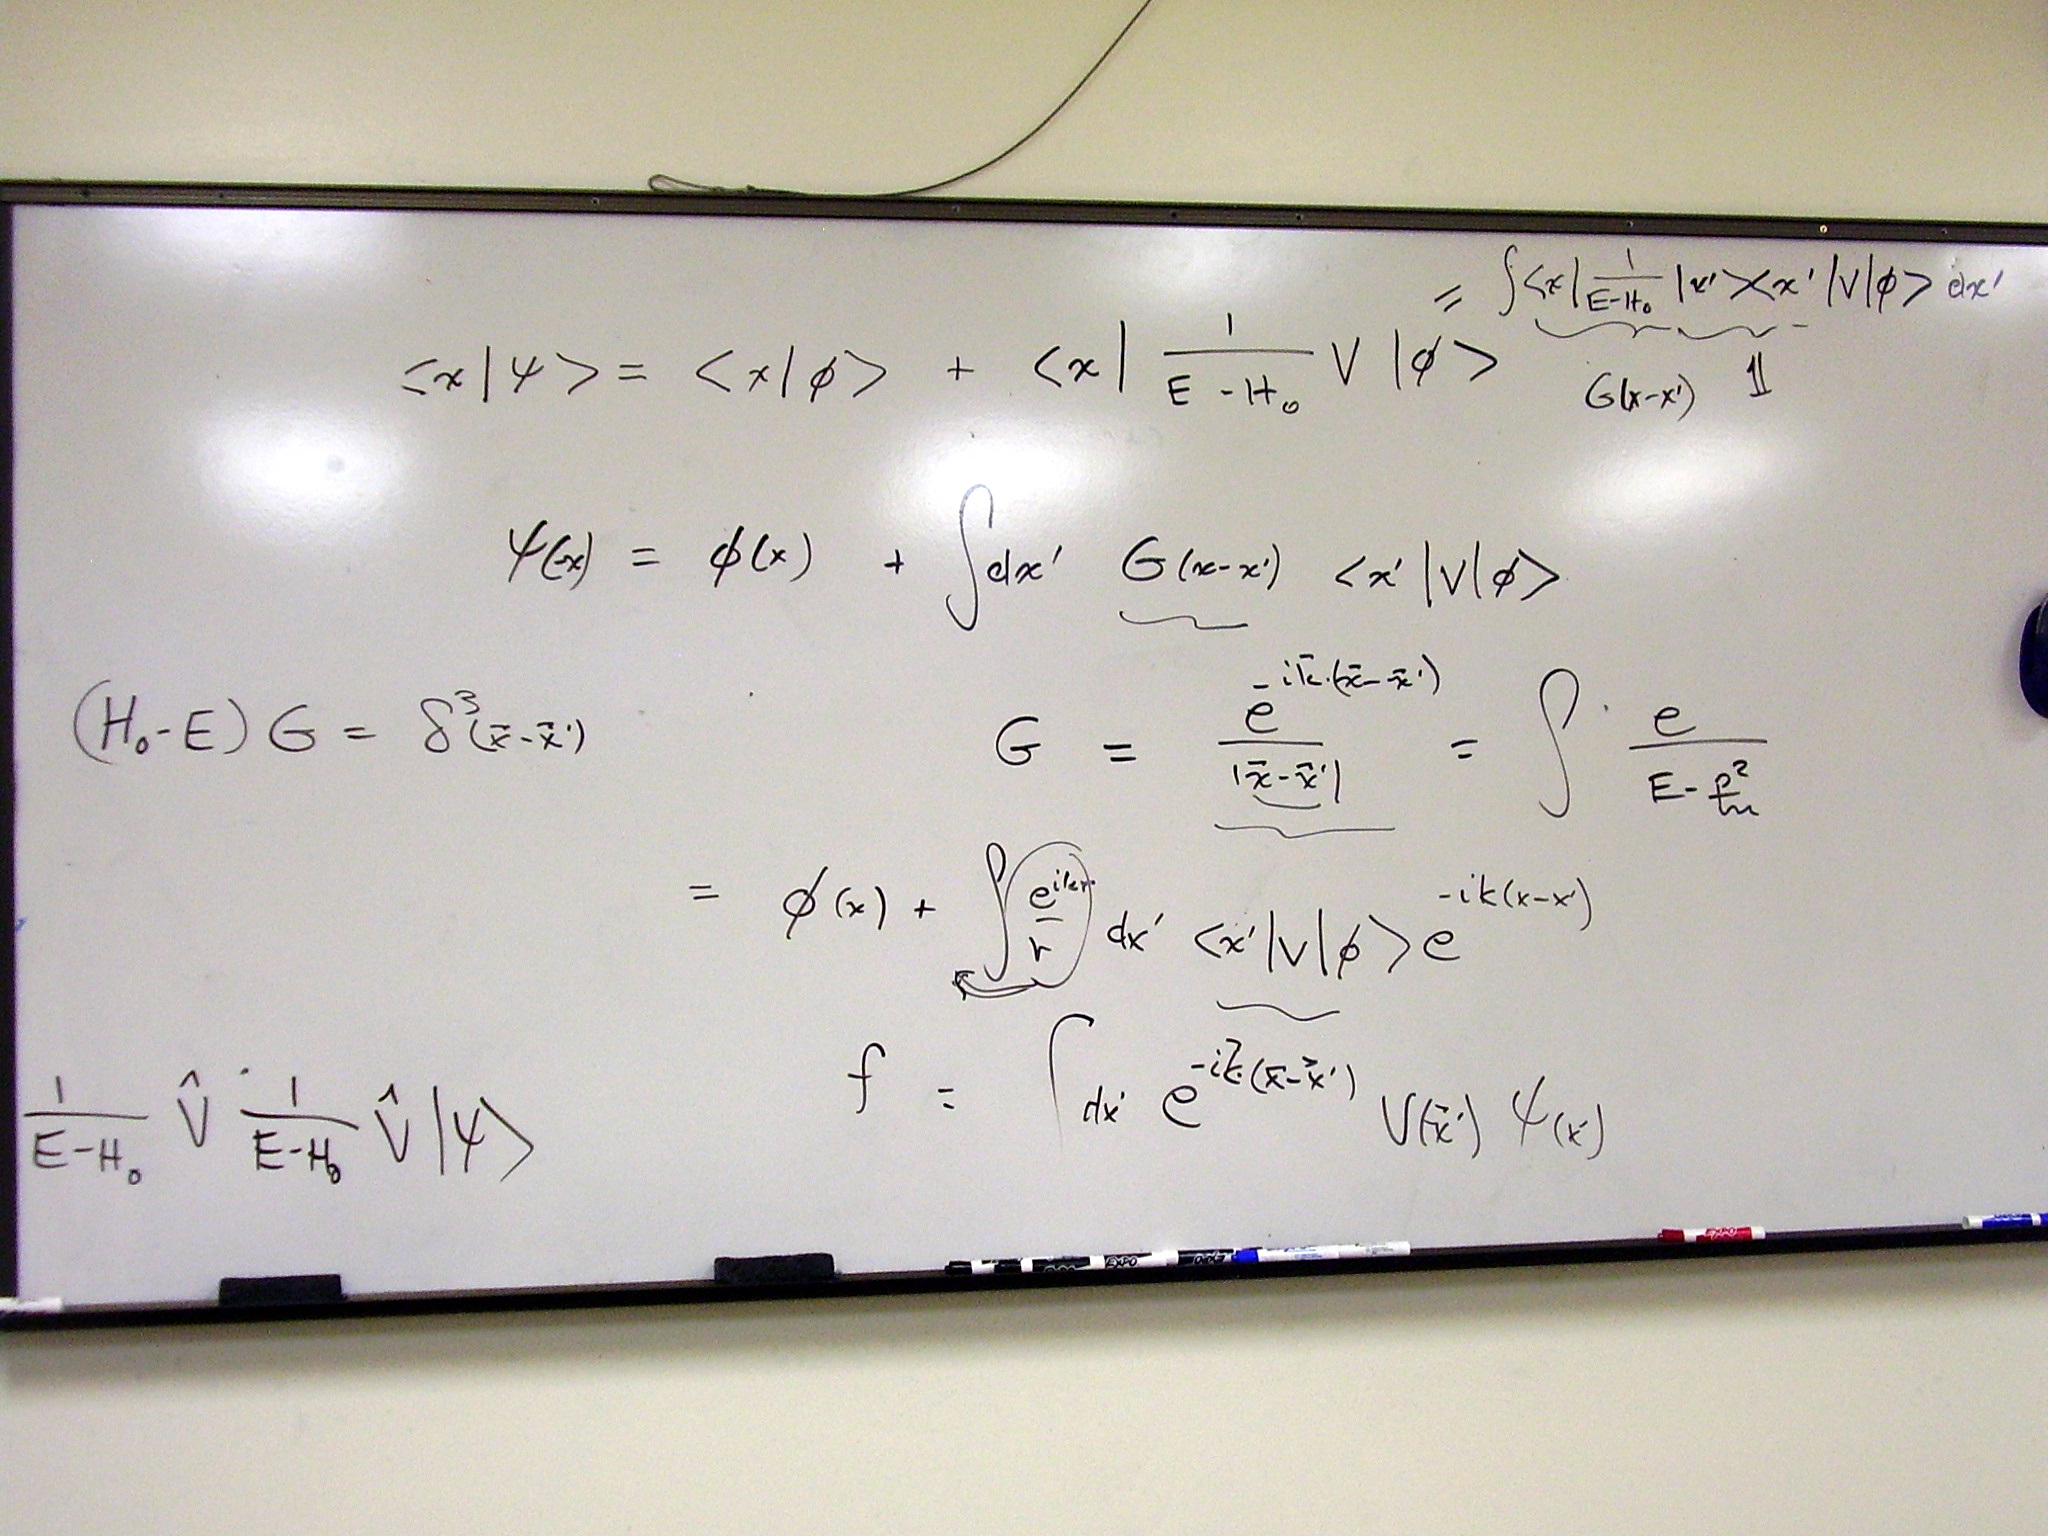 = ∫<x|1/(E-H₀)|x'><x'|V|φ> dx'
<x|ψ> = <x|φ> + <x| 1/(E-H₀) V |φ>
G(x-x') 𝟙
ψ(x) = φ(x) + ∫dx' G(x-x') <x'|V|φ>
(H₀-E) G = δ³(x̄-x̄')
G = e^{-ik̄·(x̄-x̄')}/|x̄-x̄'| = ∫ e/(E-p²/2m)
= φ(x) + ∫ e^{ikr}/r dx' <x'|V|φ> e^{-ik(x-x')}
f = ∫ dx' e^{-ik̄·(x̄-x̄')} V(x̄') ψ(x')
1/(E-H₀) V̂ 1/(E-H₀) V̂ |ψ>
EXPO
EXPO